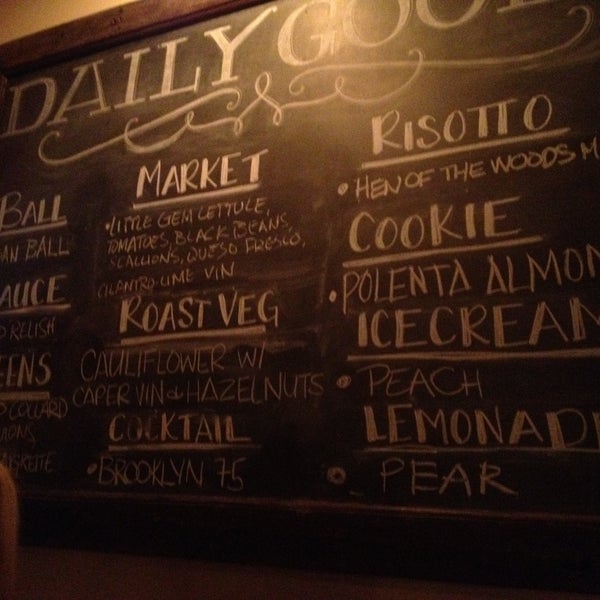 DAILY GOOD
BALL
AN BALL
AUCE
RELISH
EENS
COLLARD
MARKET
• LITTLE GEM LETTUCE,
TOMATOES, BLACK BEANS,
SCALLIONS, QUESO FRESCO,
CILANTRO-LIME VIN
ROAST VEG
CAULIFLOWER W/
CAPER VIN & HAZELNUTS
COCKTAIL
• BROOKLYN 75
RISOTTO
• HEN OF THE WOODS M
COOKIE
• POLENTA ALMON
ICECREAM
• PEACH
LEMONAD
• PEAR